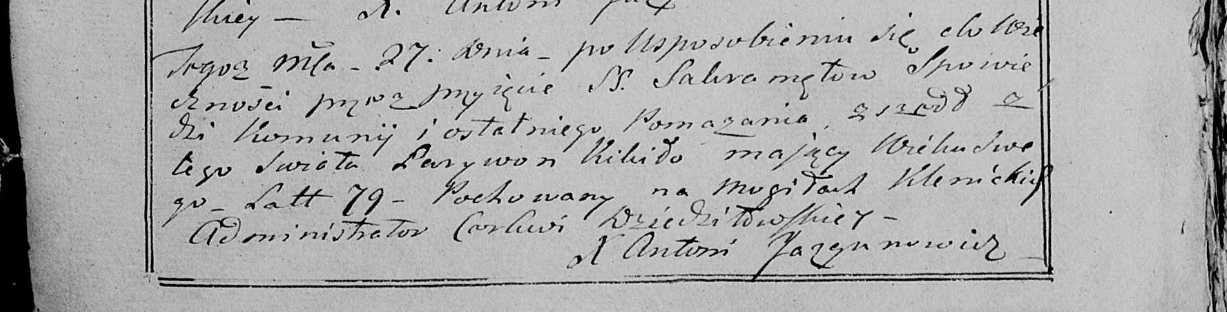 skiey — X. Antoni Jaz
Tegoż Mca - 27. Dnia - po Usposobieniu się do Wie
czności przez przyięcie SS. Sakramętow Spowie
dzi Komunij i ostatniego Pomazania, zszedł z
tego Swiata Larywon Kikiło mający Wieku swe
go - Latt 79 - Pochowany na Mogiłach Klenickich
Administrator Cerkwi Dziedziłowskiey -
X Antoni Jazgunowicz